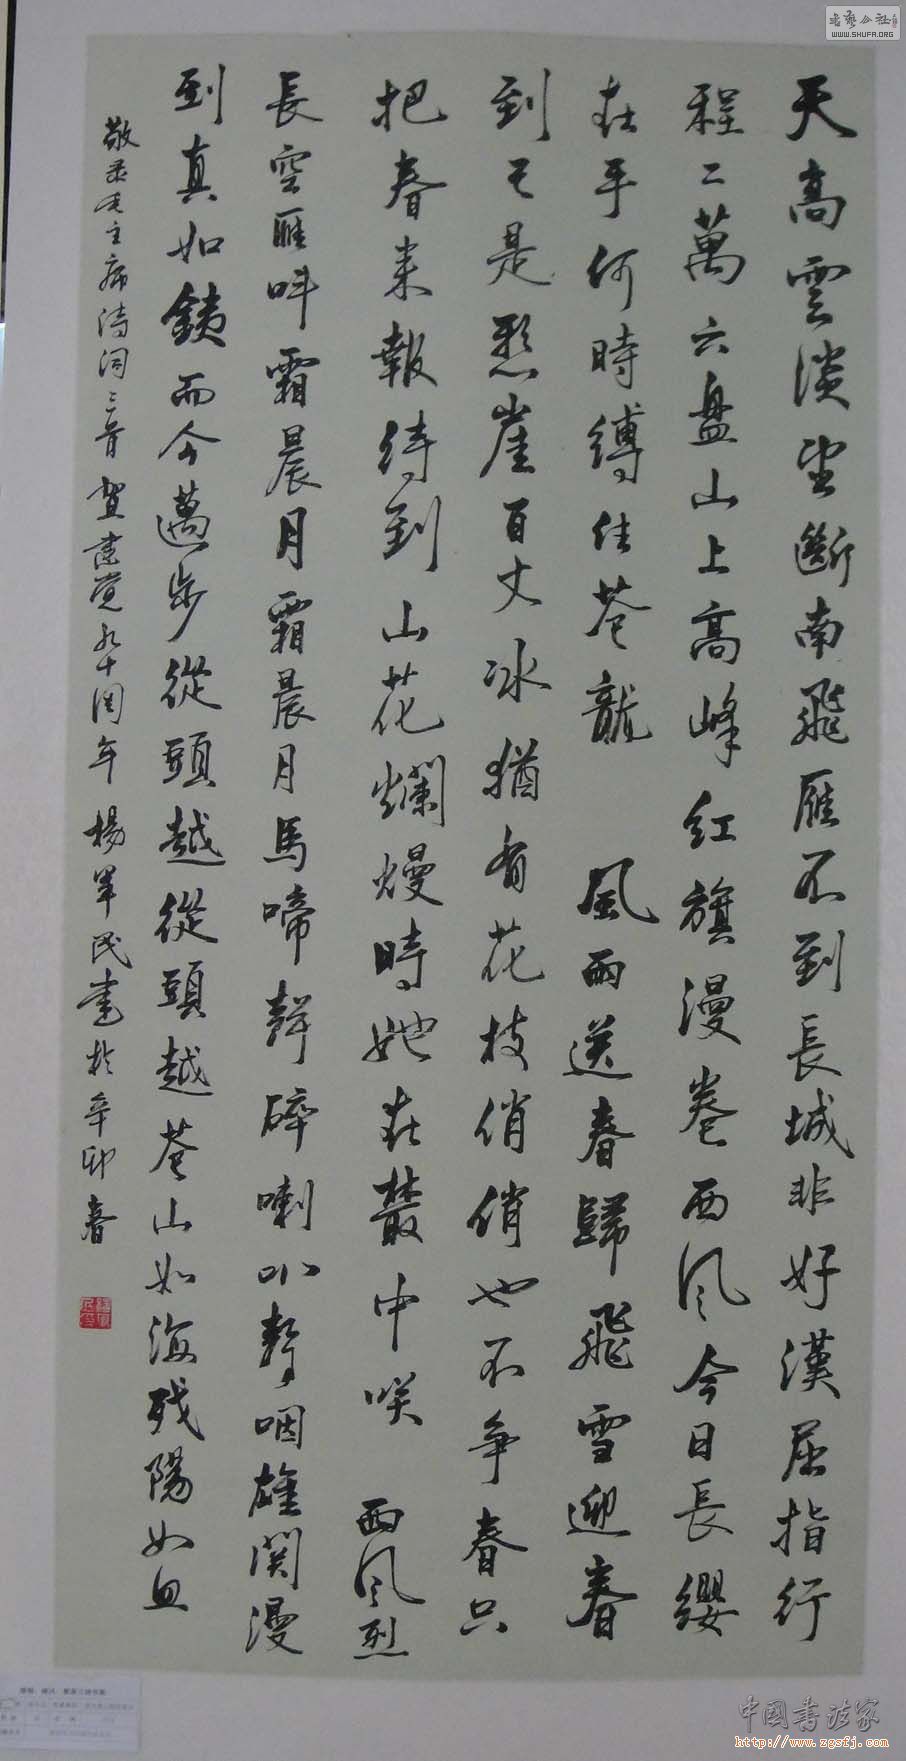 天高雲淡望斷南飛雁不到長城非好漢屈指行
程二萬六盤山上高峰紅旗漫卷西風今日長纓
在手何時縛住苍龍 風雨送春歸飛雪迎春
到已是懸崖百丈冰猶有花枝俏俏也不爭春只
把春来報待到山花爛熳時她在叢中咲 西風烈
長空雁叫霜晨月霜晨月馬啼聲碎喇叭聲咽雄関漫
到真如鐵而今邁步從頭越從頭越苍山如海残陽如血
敬录毛主席诗词三首贺建党九十周年楊軍民書於辛卯春
書藝公社
WWW.SHUFA.ORG
中國書法家
http://www.zgsfj.com